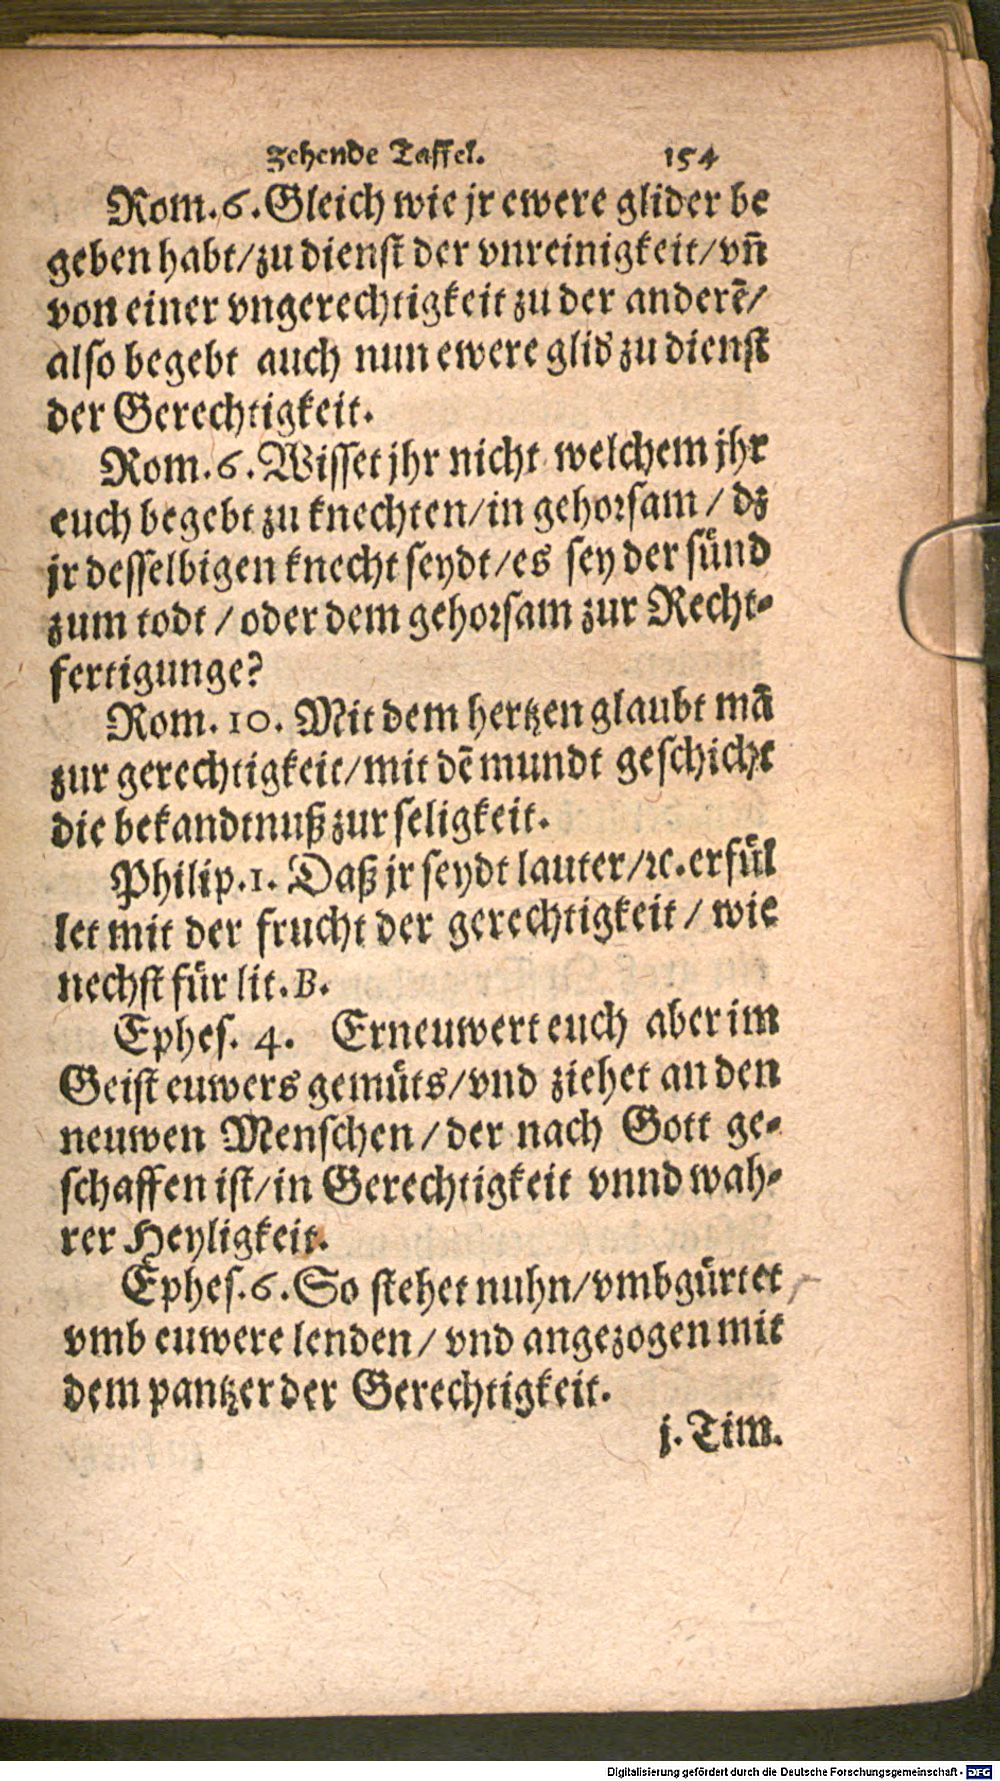 zehende Taffel. 154
Rom. 6. Gleich wie jr ewere glider be
geben habt/zu dienst der vnreinigkeit/vñ
von einer vngerechtigkeit zu der anderẽ/
also begebt auch nun ewere glid zu dienst
der Gerechtigkeit.
Rom. 6. Wisset jhr nicht welchem jhr
euch begebt zu knechten/in gehorsam / dz
jr desselbigen knecht seydt/es sey der sünd
zum todt / oder dem gehorsam zur Recht-
fertigunge?
Rom. 10. Mit dem hertzen glaubt mã
zur gerechtigkeit/mit dẽ mundt geschicht
die bekandtnuß zur seligkeit.
Philip. 1. Daß jr seydt lauter/ꝛc. erfül
let mit der frucht der gerechtigkeit / wie
nechst für lit. B.
Ephes. 4. Erneuwert euch aber im
Geist euwers gemüts/vnd ziehet an den
neuwen Menschen / der nach Gott ge-
schaffen ist/in Gerechtigkeit vnnd wah-
rer Heyligkeit.
Ephes. 6. So stehet nuhn/vmbgürtet
vmb euwere lenden/ vnd angezogen mit
dem pantzer der Gerechtigkeit.
j. Tim.
Digitalisierung gefördert durch die Deutsche Forschungsgemeinschaft - DFG